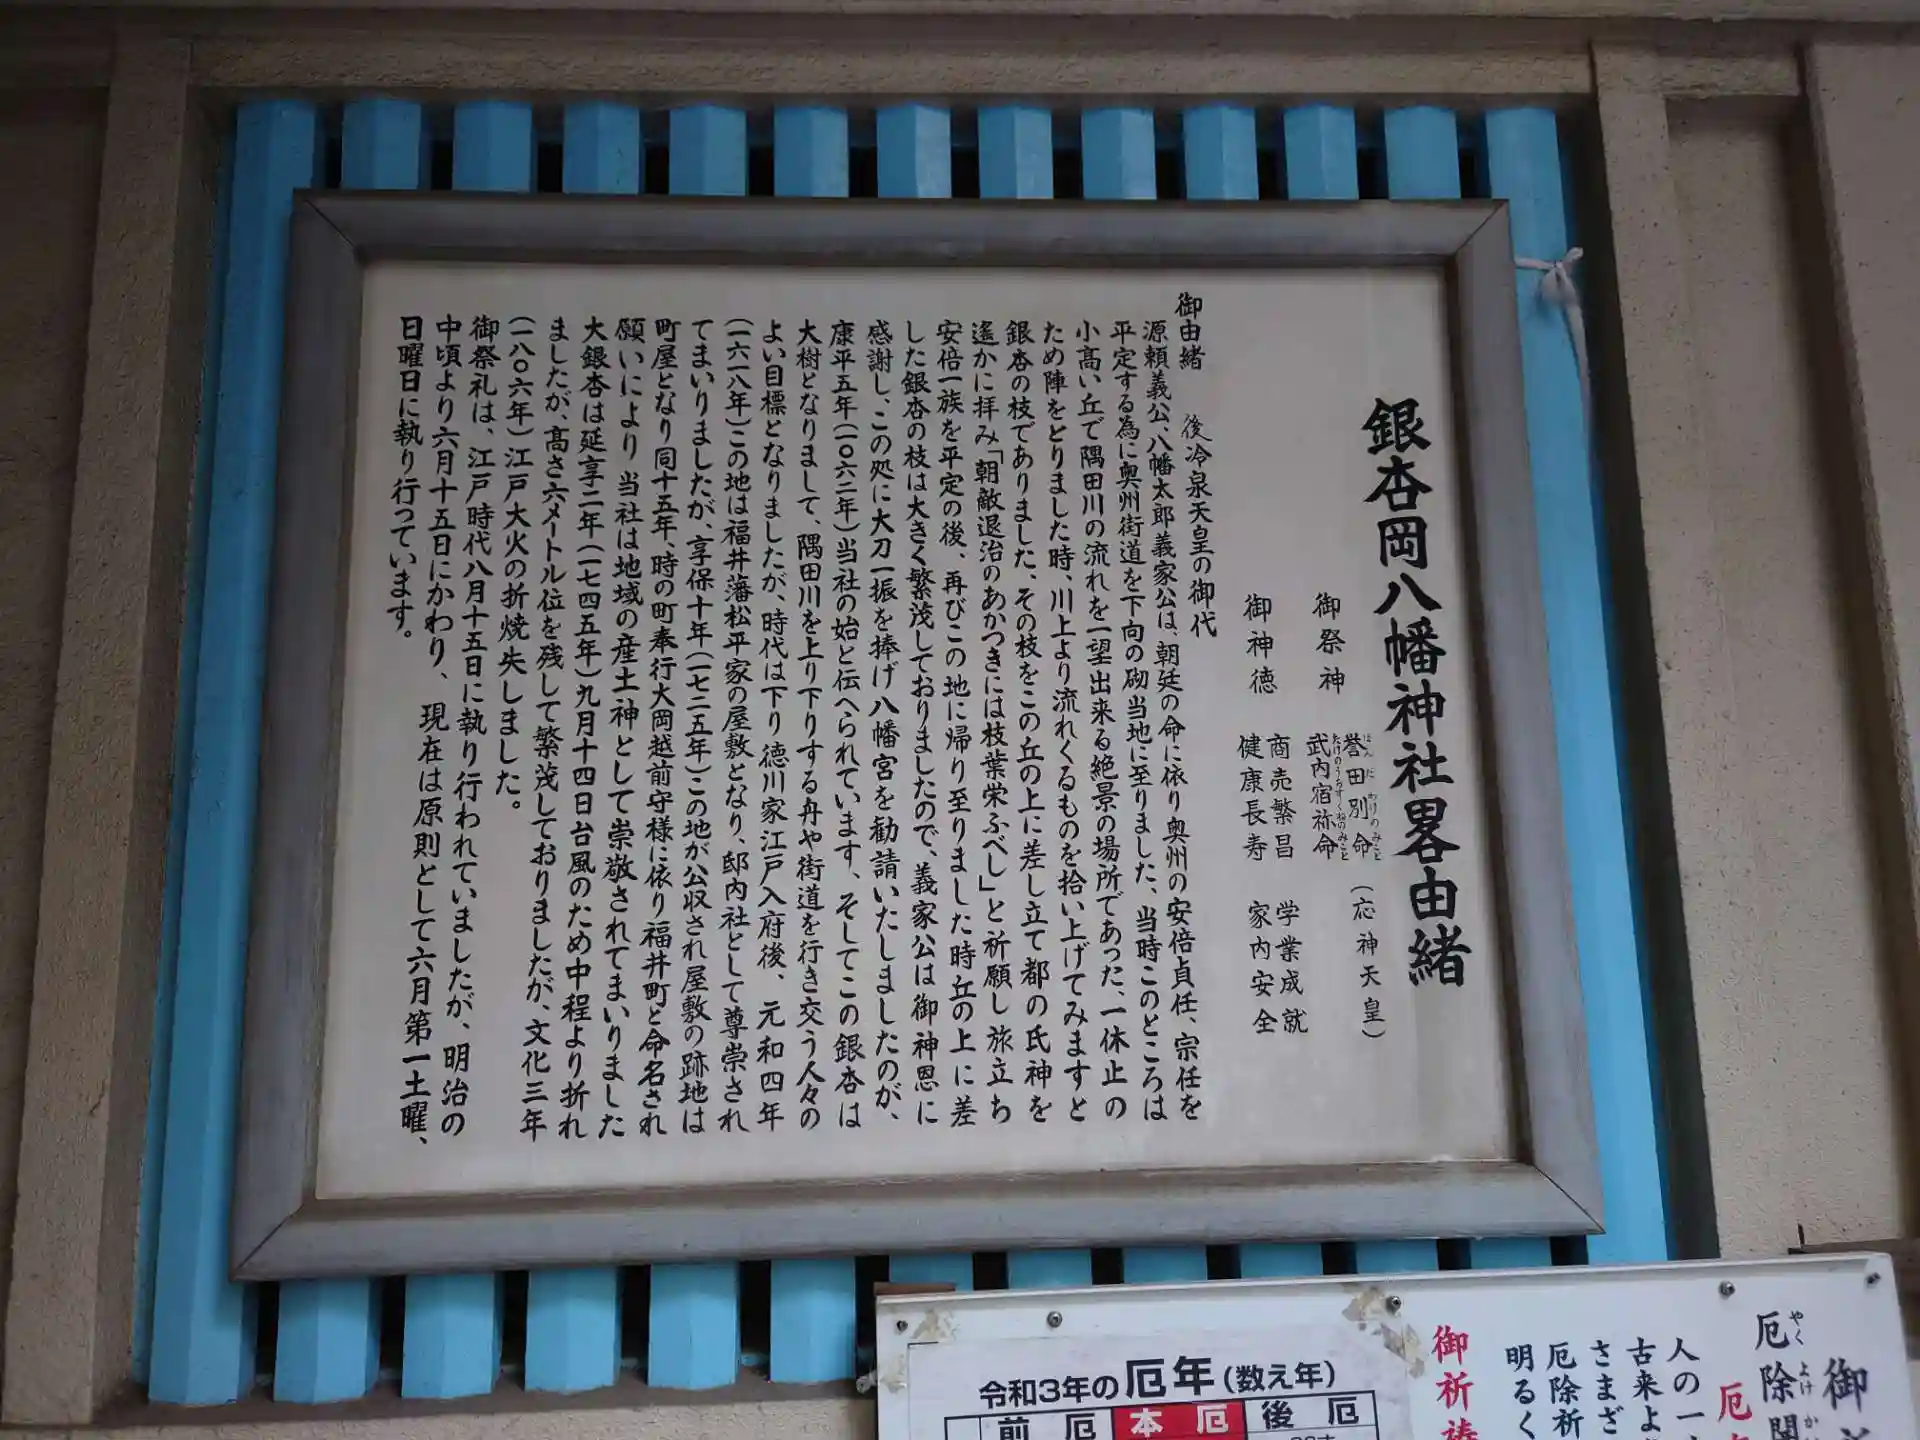 銀杏岡八幡神社畧由緒
御祭神
誉田別命（応神天皇）
ほんだわけのみこと
武内宿祢命
たけのうちすくねのみこと
御神徳
商売繁昌 学業成就
健康長寿 家内安全
御由緒 後冷泉天皇の御代
源頼義公、八幡太郎義家公は、朝廷の命に依り奥州の安倍貞任、宗任を
平定する為に奥州街道を下向の砌当地に至りました、当時このところは
小高い丘で隅田川の流れを一望出来る絶景の場所であった、一休止の
ため陣をとりました時、川上より流れくるものを拾い上げてみますと
銀杏の枝でありました、その枝をこの丘の上に差し立て都の氏神を
遙かに拝み「朝敵退治のあかつきには枝葉栄ふべし」と祈願し旅立ち
安倍一族を平定の後、再びこの地に帰り至りました時丘の上に差
した銀杏の枝は大きく繁茂しておりましたので、義家公は御神恩に
感謝し、この処に大刀一振を捧げ八幡宮を勧請いたしましたのが、
康平五年（一〇六二年）当社の始と伝へられています、そしてこの銀杏は
大樹となりまして、隅田川を上り下りする舟や街道を行き交う人々の
よい目標となりましたが、時代は下り徳川家江戸入府後、元和四年
（一六一八年）この地は福井藩松平家の屋敷となり、邸内社として尊崇され
てまいりましたが、享保十年（一七二五年）この地が公収され屋敷の跡地は
町屋となり同十五年、時の町奉行大岡越前守様に依り福井町と命名され
願いにより 当社は地域の産土神として崇敬されてまいりました
大銀杏は延享二年（一七四五年）九月十四日台風のため中程より折れ
ましたが、高さ六メートル位を残して繁茂しておりましたが、文化三年
（一八〇六年）江戸大火の折焼失しました。
御祭礼は、江戸時代八月十五日に執り行われていましたが、明治の
中頃より六月十五日にかわり、現在は原則として六月第一土曜、
日曜日に執り行っています。
令和3年の厄年（数え年）
前厄 本厄 後厄
御
厄除
やくよけ
厄
人の一
古来よ
さまざ
厄除祈
明るく
御祈祷